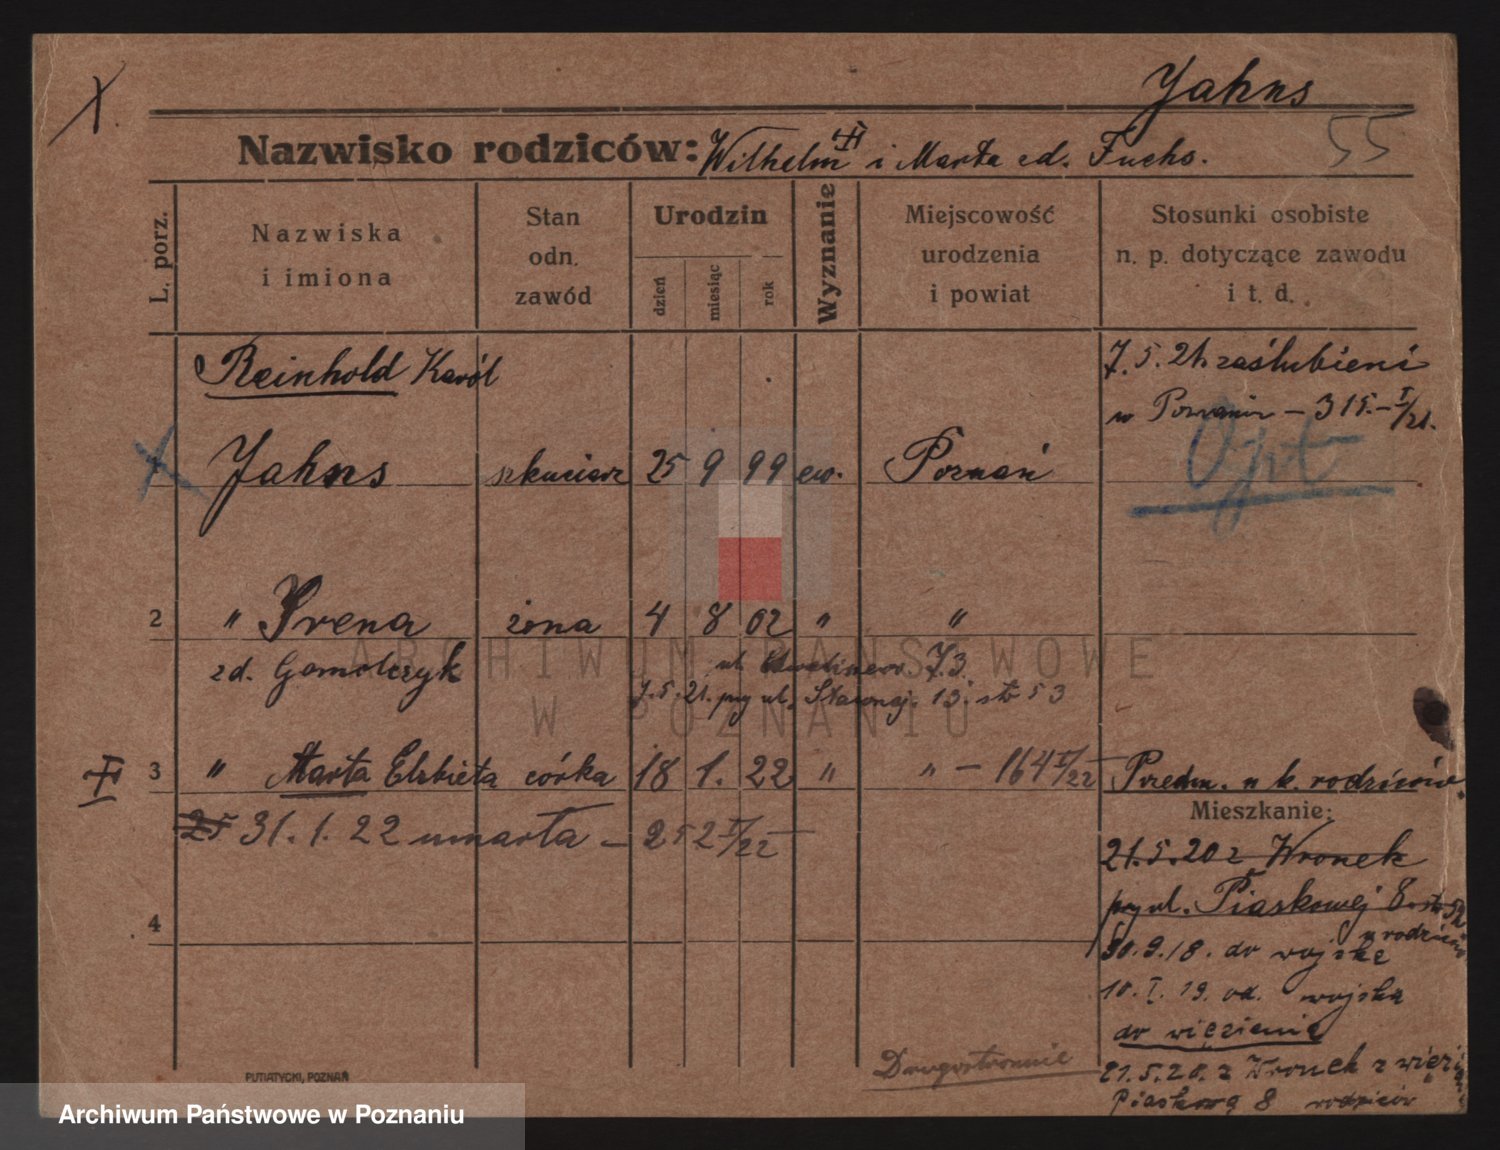 Jahns
Nazwisko rodziców: Wilhelm i Marta zd. Fuchs.
55
L. porz.
Nazwiska
i imiona
Stan
odn.
zawód
Urodzin
dzień
miesiąc
rok
Wyznanie
Miejscowość
urodzenia
i powiat
Stosunki osobiste
n. p. dotyczące zawodu
i t. d.
Reinhold Karól
7. 5. 21. zaślubieni
w Poznaniu – 315. – I/21.
1 Jahns 25 9 99 ew. Poznań
2 " Irena żona 4 8 02 " "
zd. Gomolczyk
ul. 73
7. 5. 21. przy ul. 13. 53
3 " Marta Elżbieta córka 18 1. 22 " " – 164 I/22 Przedm. u k. rodziców
25 31. 1. 22 umarła – 252 I/22
Mieszkanie:
21. 5. 20 z Wronek
przy ul. Piaskowej 8
u rodziców
4
30. 9. 18. do wojska
10. I. 19. od. wojska
do więzienia
Drugostronnie
21. 5. 20. z Wronek z
Piaskowa 8 rodziców
PUTIATYCKI, POZNAŃ
ARCHIWUM PAŃSTWOWE
W POZNANIU
Archiwum Państwowe w Poznaniu